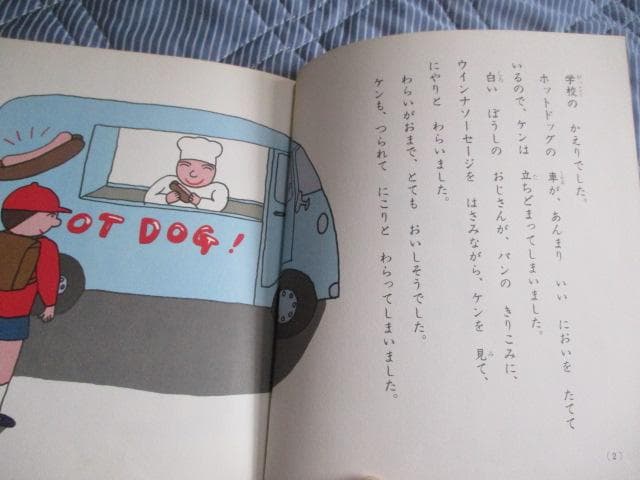 学校の かえりでした。
ホットドッグの 車が、あんまり いい においを たてて
いるので、ケンは 立ちどまってしまいました。
白い ぼうしの おじさんが、パンの きりこみに、
ウインナソーセージを はさみながら、ケンを 見て、
にやりと わらいました。
わらいがおまで、とても おいしそうでした。
ケンも、つられて にこりと わらってしまいました。
(2)
OT DOG!